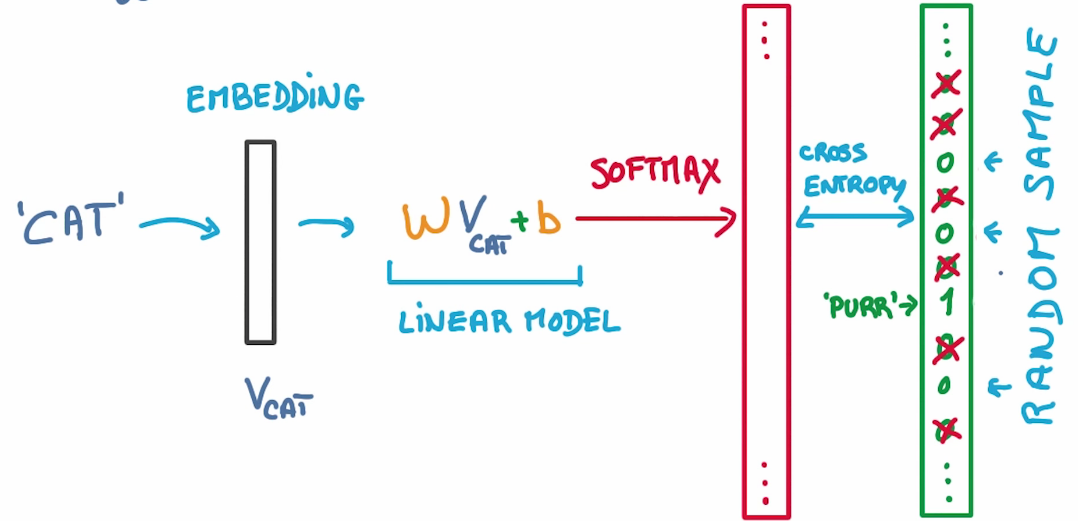 EMBEDDING
'CAT'
V CAT
W V CAT + b
LINEAR MODEL
SOFTMAX
CROSS
ENTROPY
'PURR'
0
0
0
0
0
0
1
0
0
0
RANDOM SAMPLE